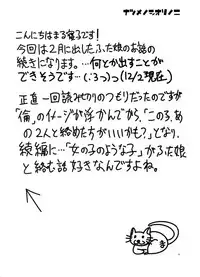 ナツメノミオリノニ
こんにちはまる寝子です!
今回は2月に出したふた娘のお話の
続きになります。…何とか出すことが
できそうです…(.:3っ)っ(12/2現在)
正直一回読みきりのつもりだったのですが
「倫」のイメージが浮かんでから、「このろ、あ
の2人と絡めた方がいいかも?」となり、
続編に…「女の子のような子」がふた娘
と絡む話好きなんですよね。